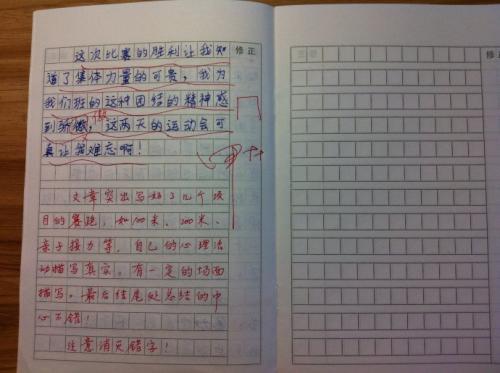 这次比赛的胜利让我知
道了集体力量的可贵，我为
我们班的这种团结的精神感
到骄傲，这两天的运动会可
真让我难忘啊！
文章突出写好了几个项
目的赛跑，如100米、200米、
亲子接力等，自己的心理活
动描写真实。有一定的场面
描写。最后结尾处总结的中
心不错！
注意消灭错字！
修正